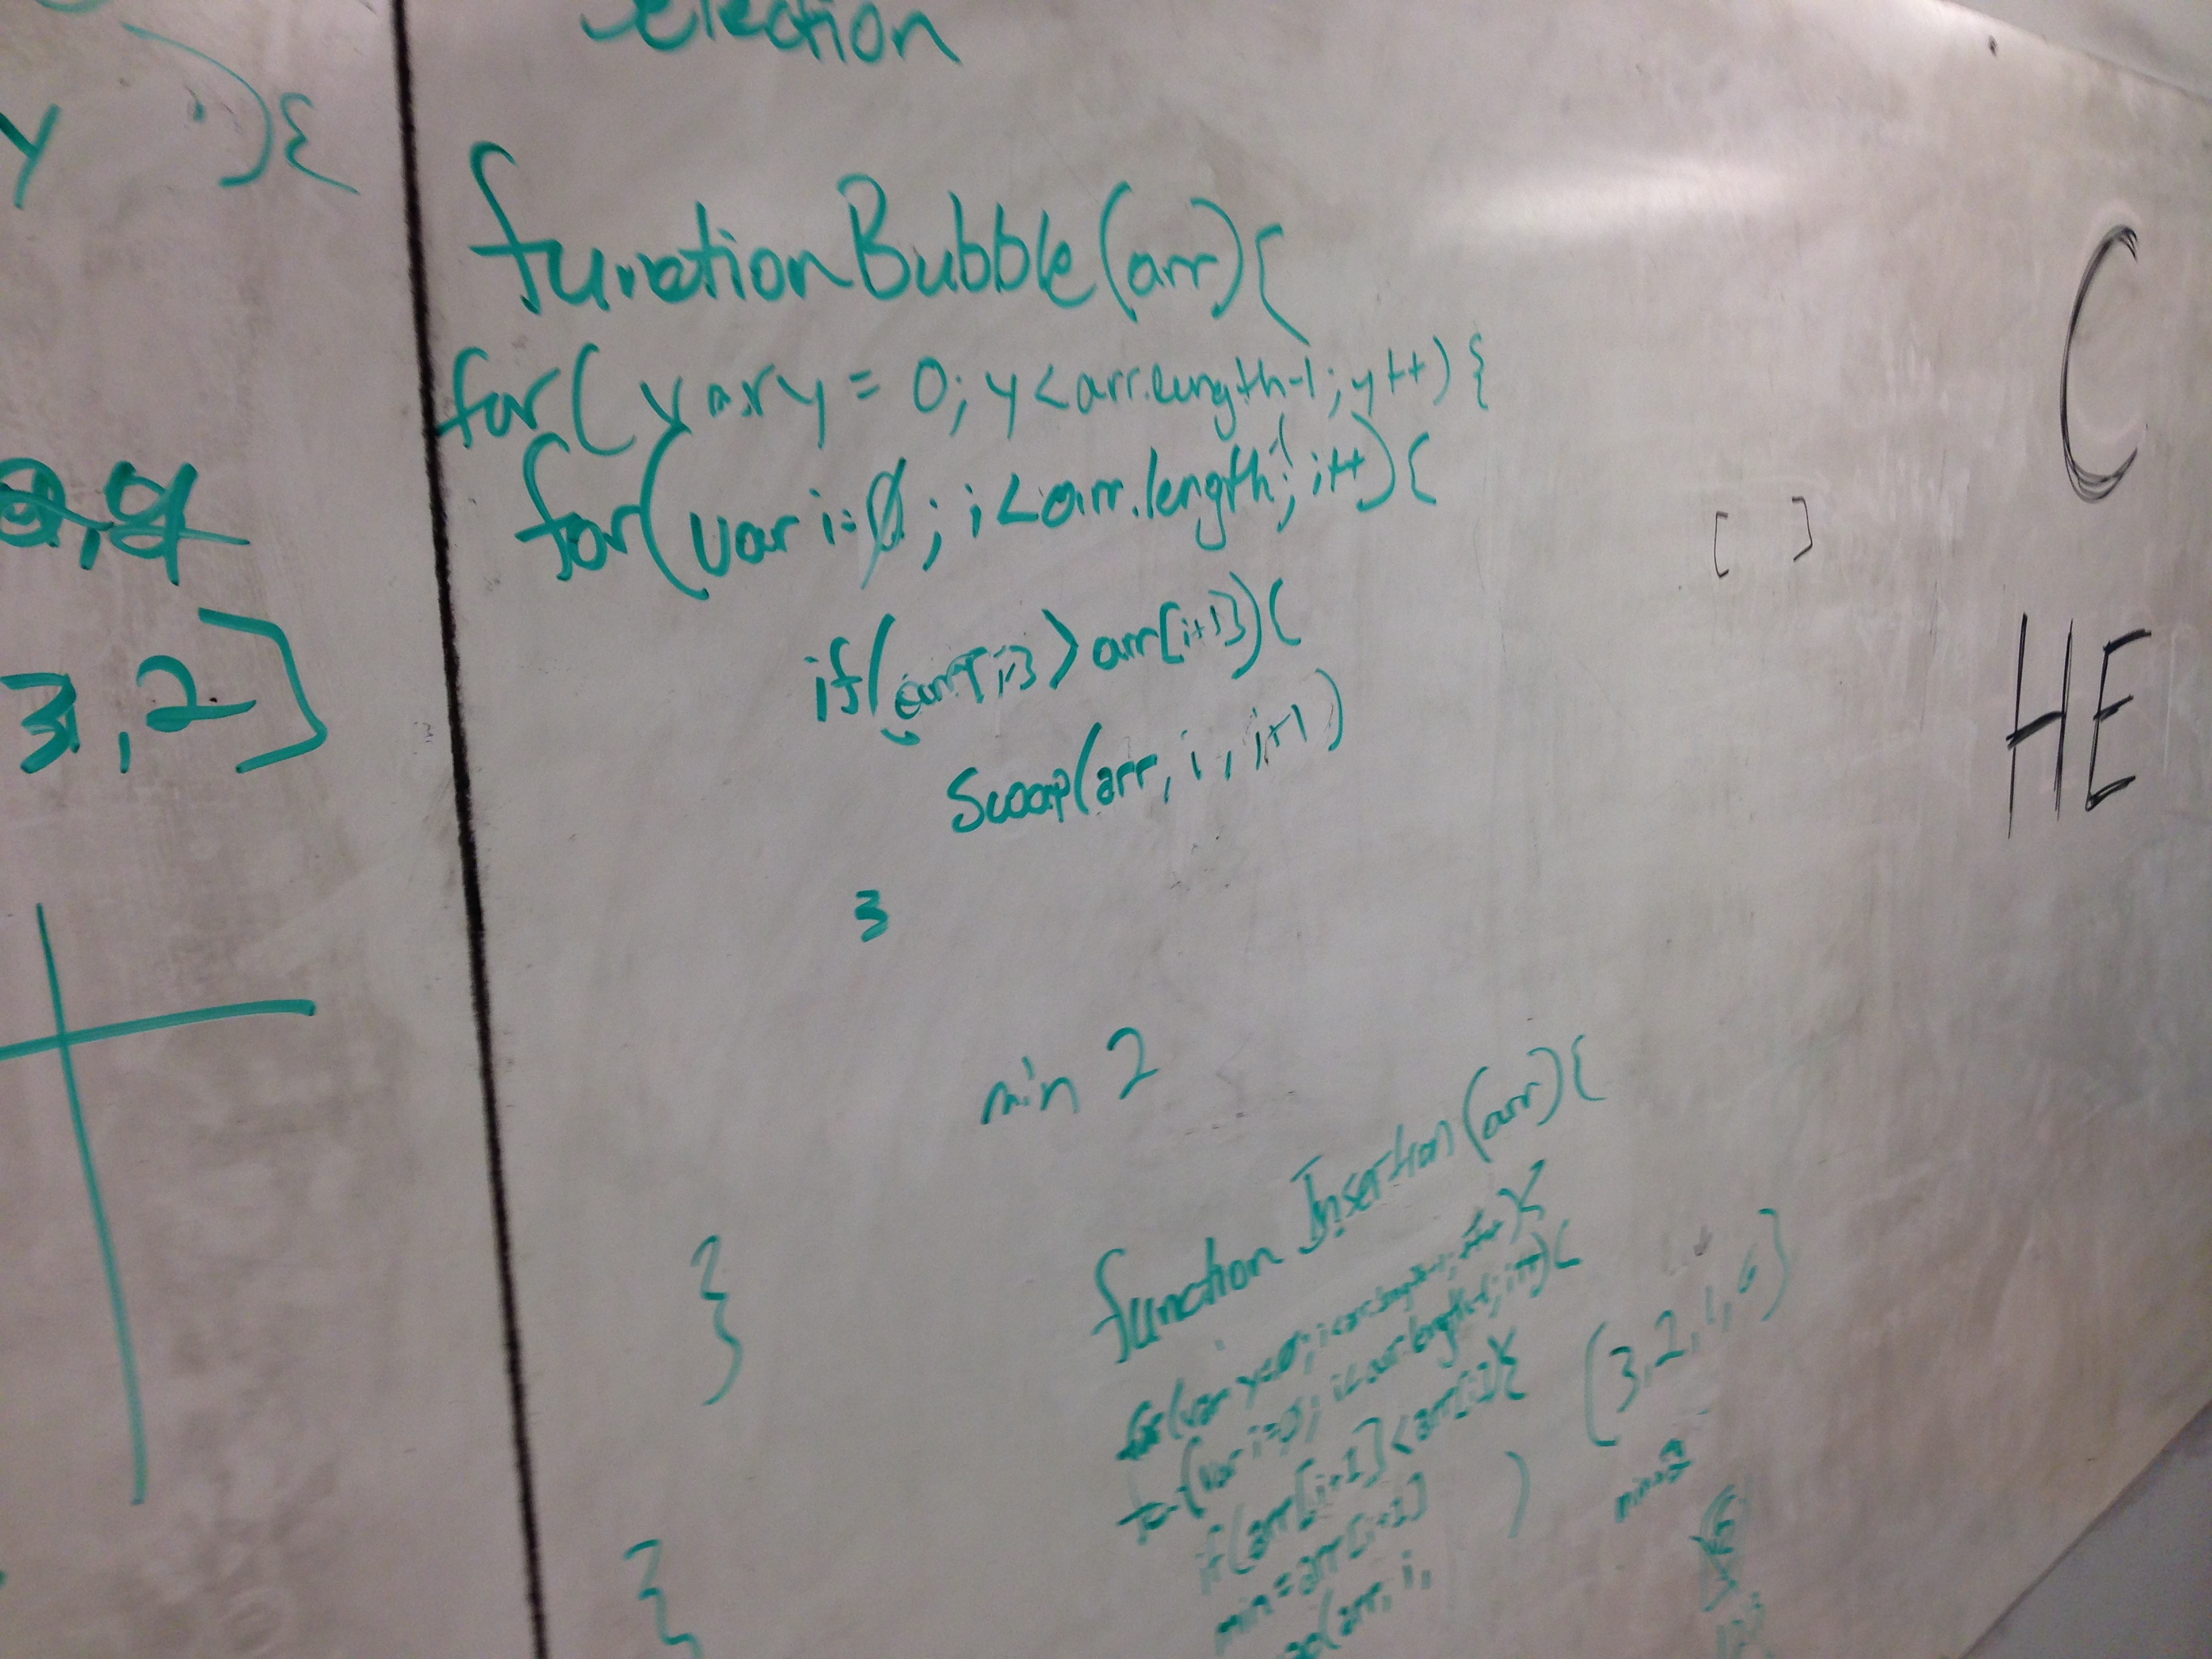 election
y ){
functionBubble(arr){
for(var y = 0; y<arr.length-1; y++){
for(var i=0; i<arr.length-1; i++){
if(arr[i]>arr[i+1]){
Swap(arr, i, i+1)
}
3,2]
min 2
}
}
function Insertion(arr){
for(var y=0; i<arr.length-1; i++){
for(var i=0; i<arr.length-1; i++){
if(arr[i+1]<arr[i]){
min=arr[i+1]
(arr, i, )
[3,2,1,6]
min=2
[ ]
C
HE